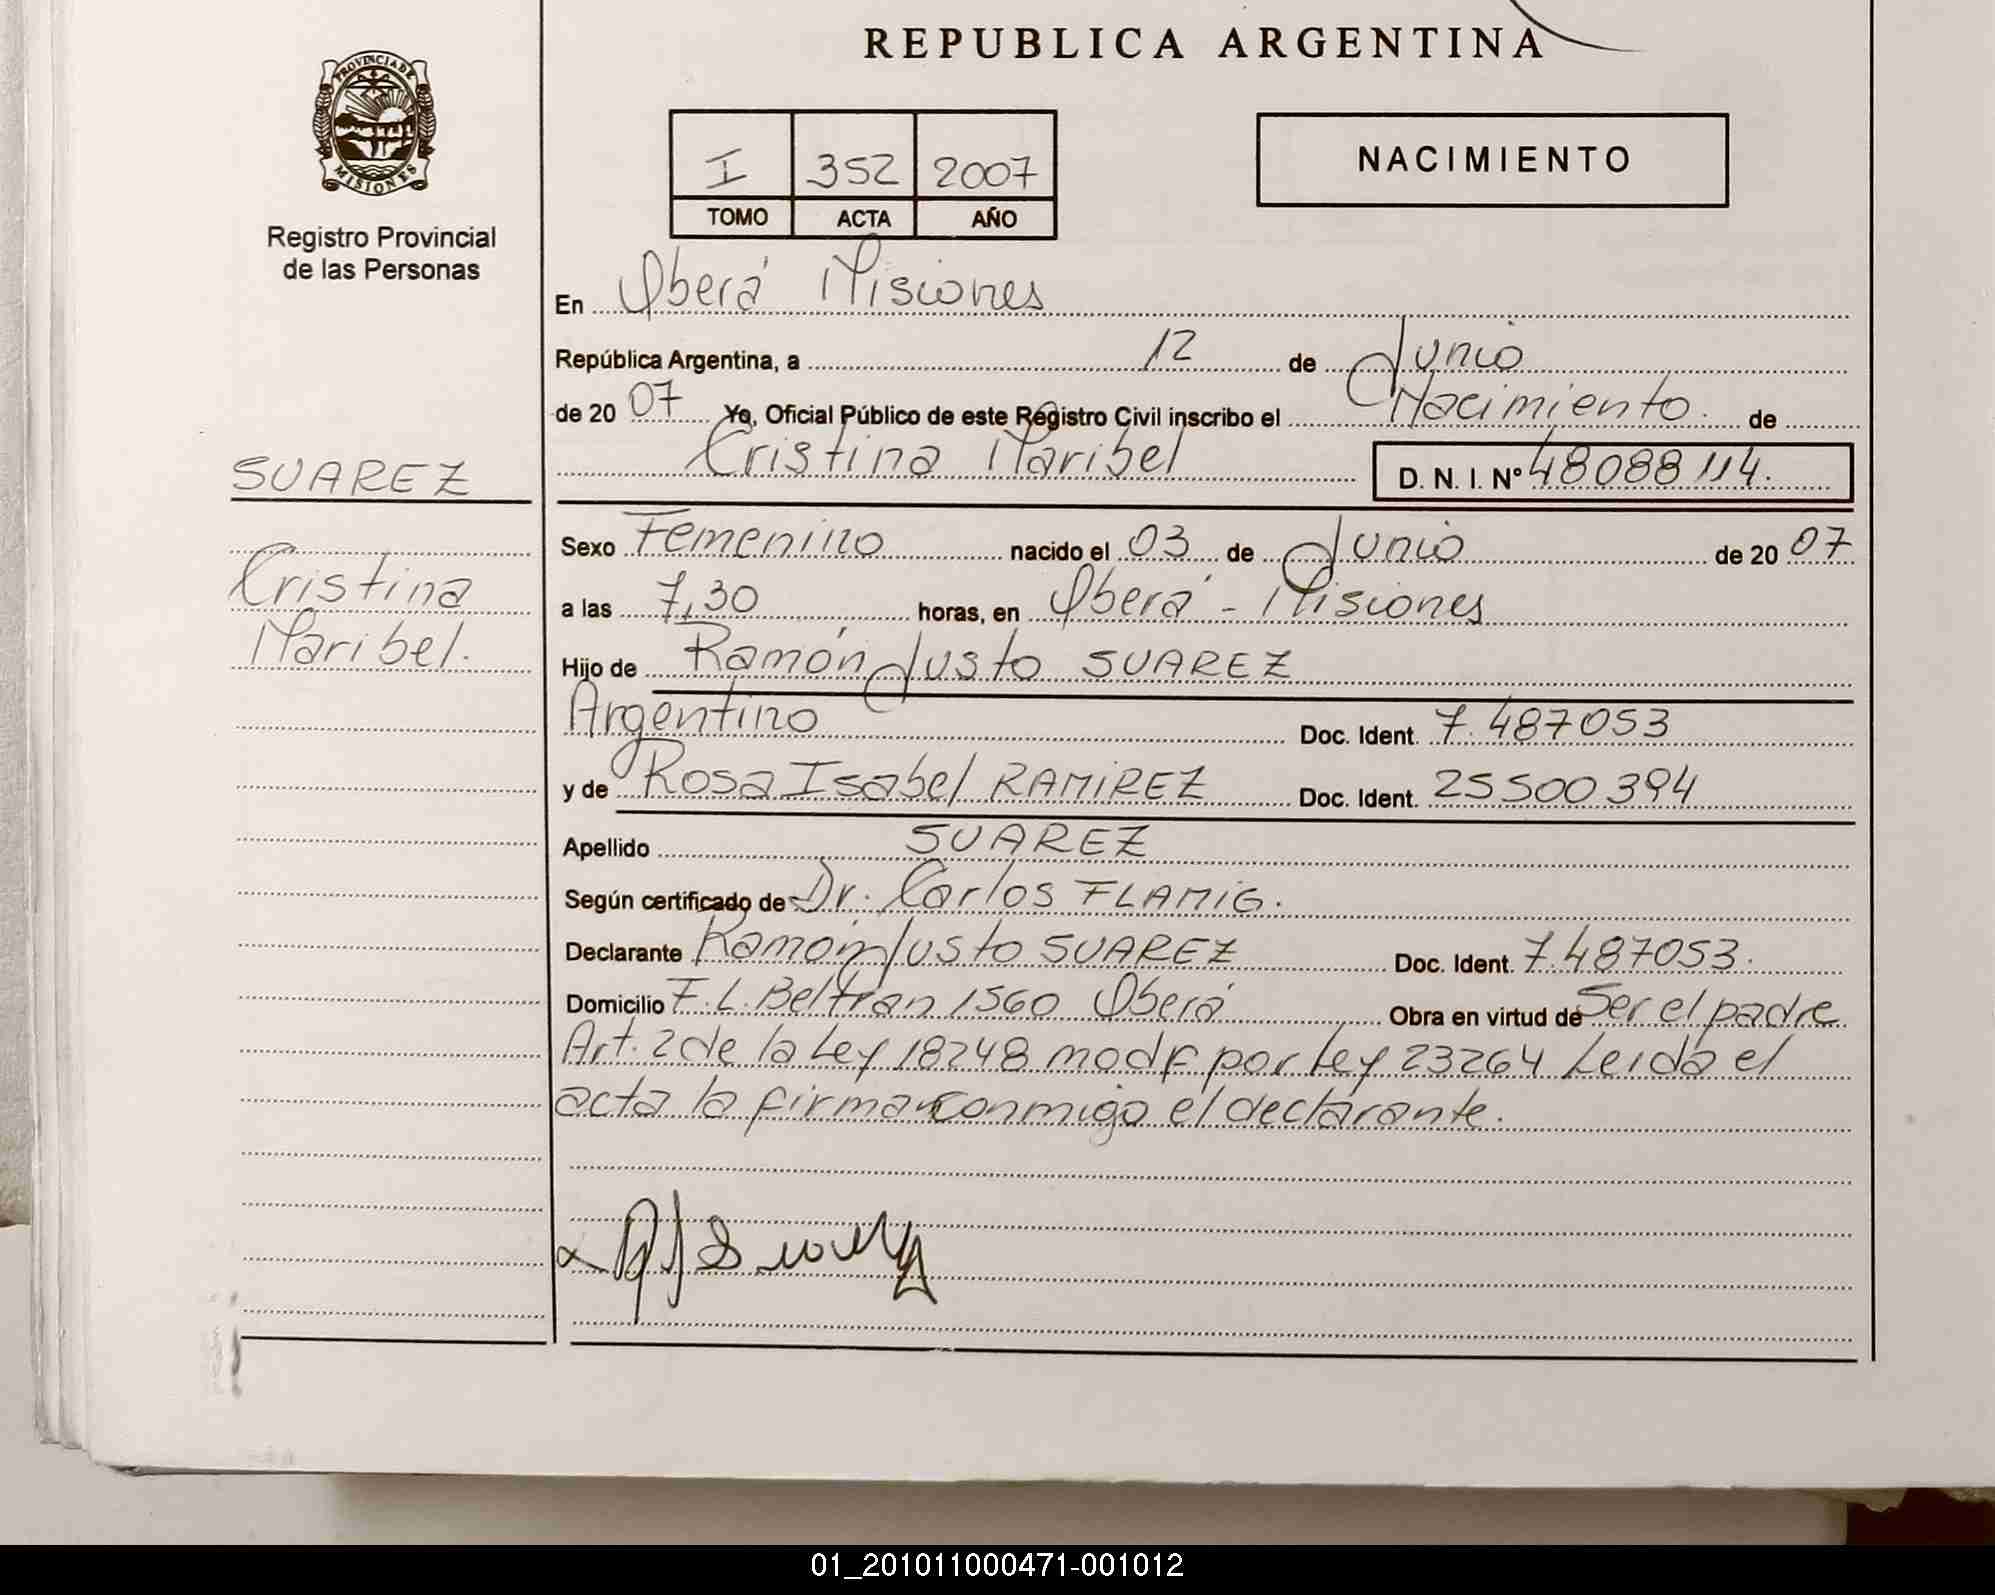 REPUBLICA ARGENTINA
PROVINCIA DE
MISIONES
Registro Provincial
de las Personas
I 352 2007
TOMO ACTA AÑO
NACIMIENTO
En Oberá Misiones
República Argentina, a 12 de Junio
de 20 07 Yo, Oficial Público de este Registro Civil inscribo el Nacimiento. de
Cristina Maribel D. N. I. Nº 48088114.
SUAREZ
Cristina
Maribel.
Sexo Femenino nacido el 03 de Junio de 20 07
a las 7,30 horas, en Oberá - Misiones
Hijo de Ramón Justo SUAREZ
Argentino Doc. Ident. 7.487053
y de Rosa Isabel RAMIREZ Doc. Ident. 25500394
Apellido SUAREZ
Según certificado de Dr. Carlos FLAMIG.
Declarante Ramón Justo SUAREZ Doc. Ident. 7.487053.
Domicilio F. L. Beltran 1560 Oberá Obra en virtud de Ser el padre
Art. 2 de la Ley 18248 modf por Ley 23264 Leida el
acta la firman conmigo el declarante.
01_201011000471-001012